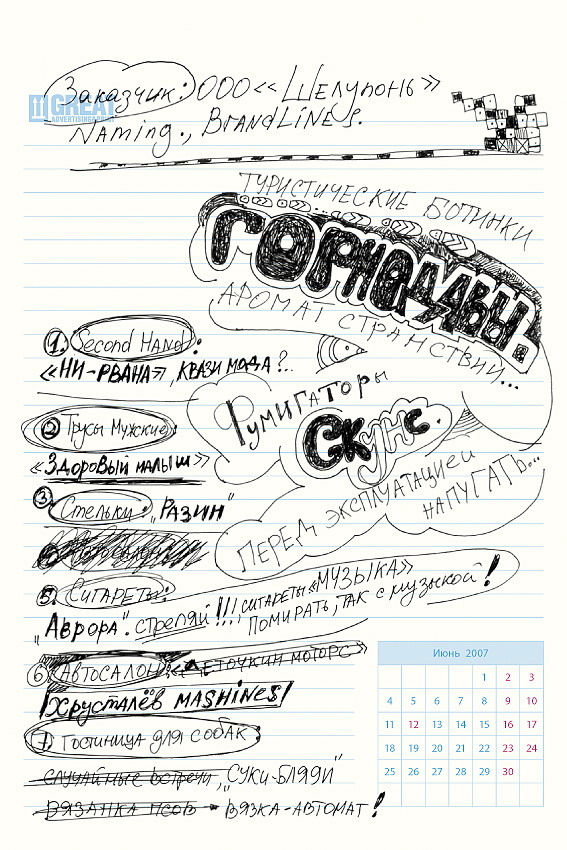 Заказчик: ООО «Шелупонь»
GREAT
ADVERTISING GROUP
Naming., BrandLines.
ТУРИСТИЧЕСКИЕ БОТИНКИ
ГОРНОДАВЫ.
АРОМАТ СТРАНСТВИЙ...
1. Second Hand:
«НИ-РВАНАЯ», КВАЗИ МОДА?..
Фумигаторы
Скунс.
2 Трусы Мужские:
«ЗДОРОВЫЙ МАЛЫШ»
ПЕРЕД ЭКСПЛУАТАЦИЕЙ
НАПУГАТЬ...
3 Стельки: „РАЗИН"
5. СИГАРЕТЫ:
„АВРОРА". стреляй!!!
СИГАРЕТЫ «МУЗЫКА»
ПОМИРАТЬ, ТАК с музыкой!
6 АВТОСАЛОН: «ЛЕТОЧКИН МОТОРС»
Хрусталёв MASHINES
7 Гостиница для собак
случайные встречи, „СУКИ-БЛЯДИ"
ВЯЗАНКА ПСОВ - ВЯЗКА-АВТОМАТ!
Июнь 2007
1 2 3
4 5 6 7 8 9 10
11 12 13 14 15 16 17
18 19 20 21 22 23 24
25 26 27 28 29 30